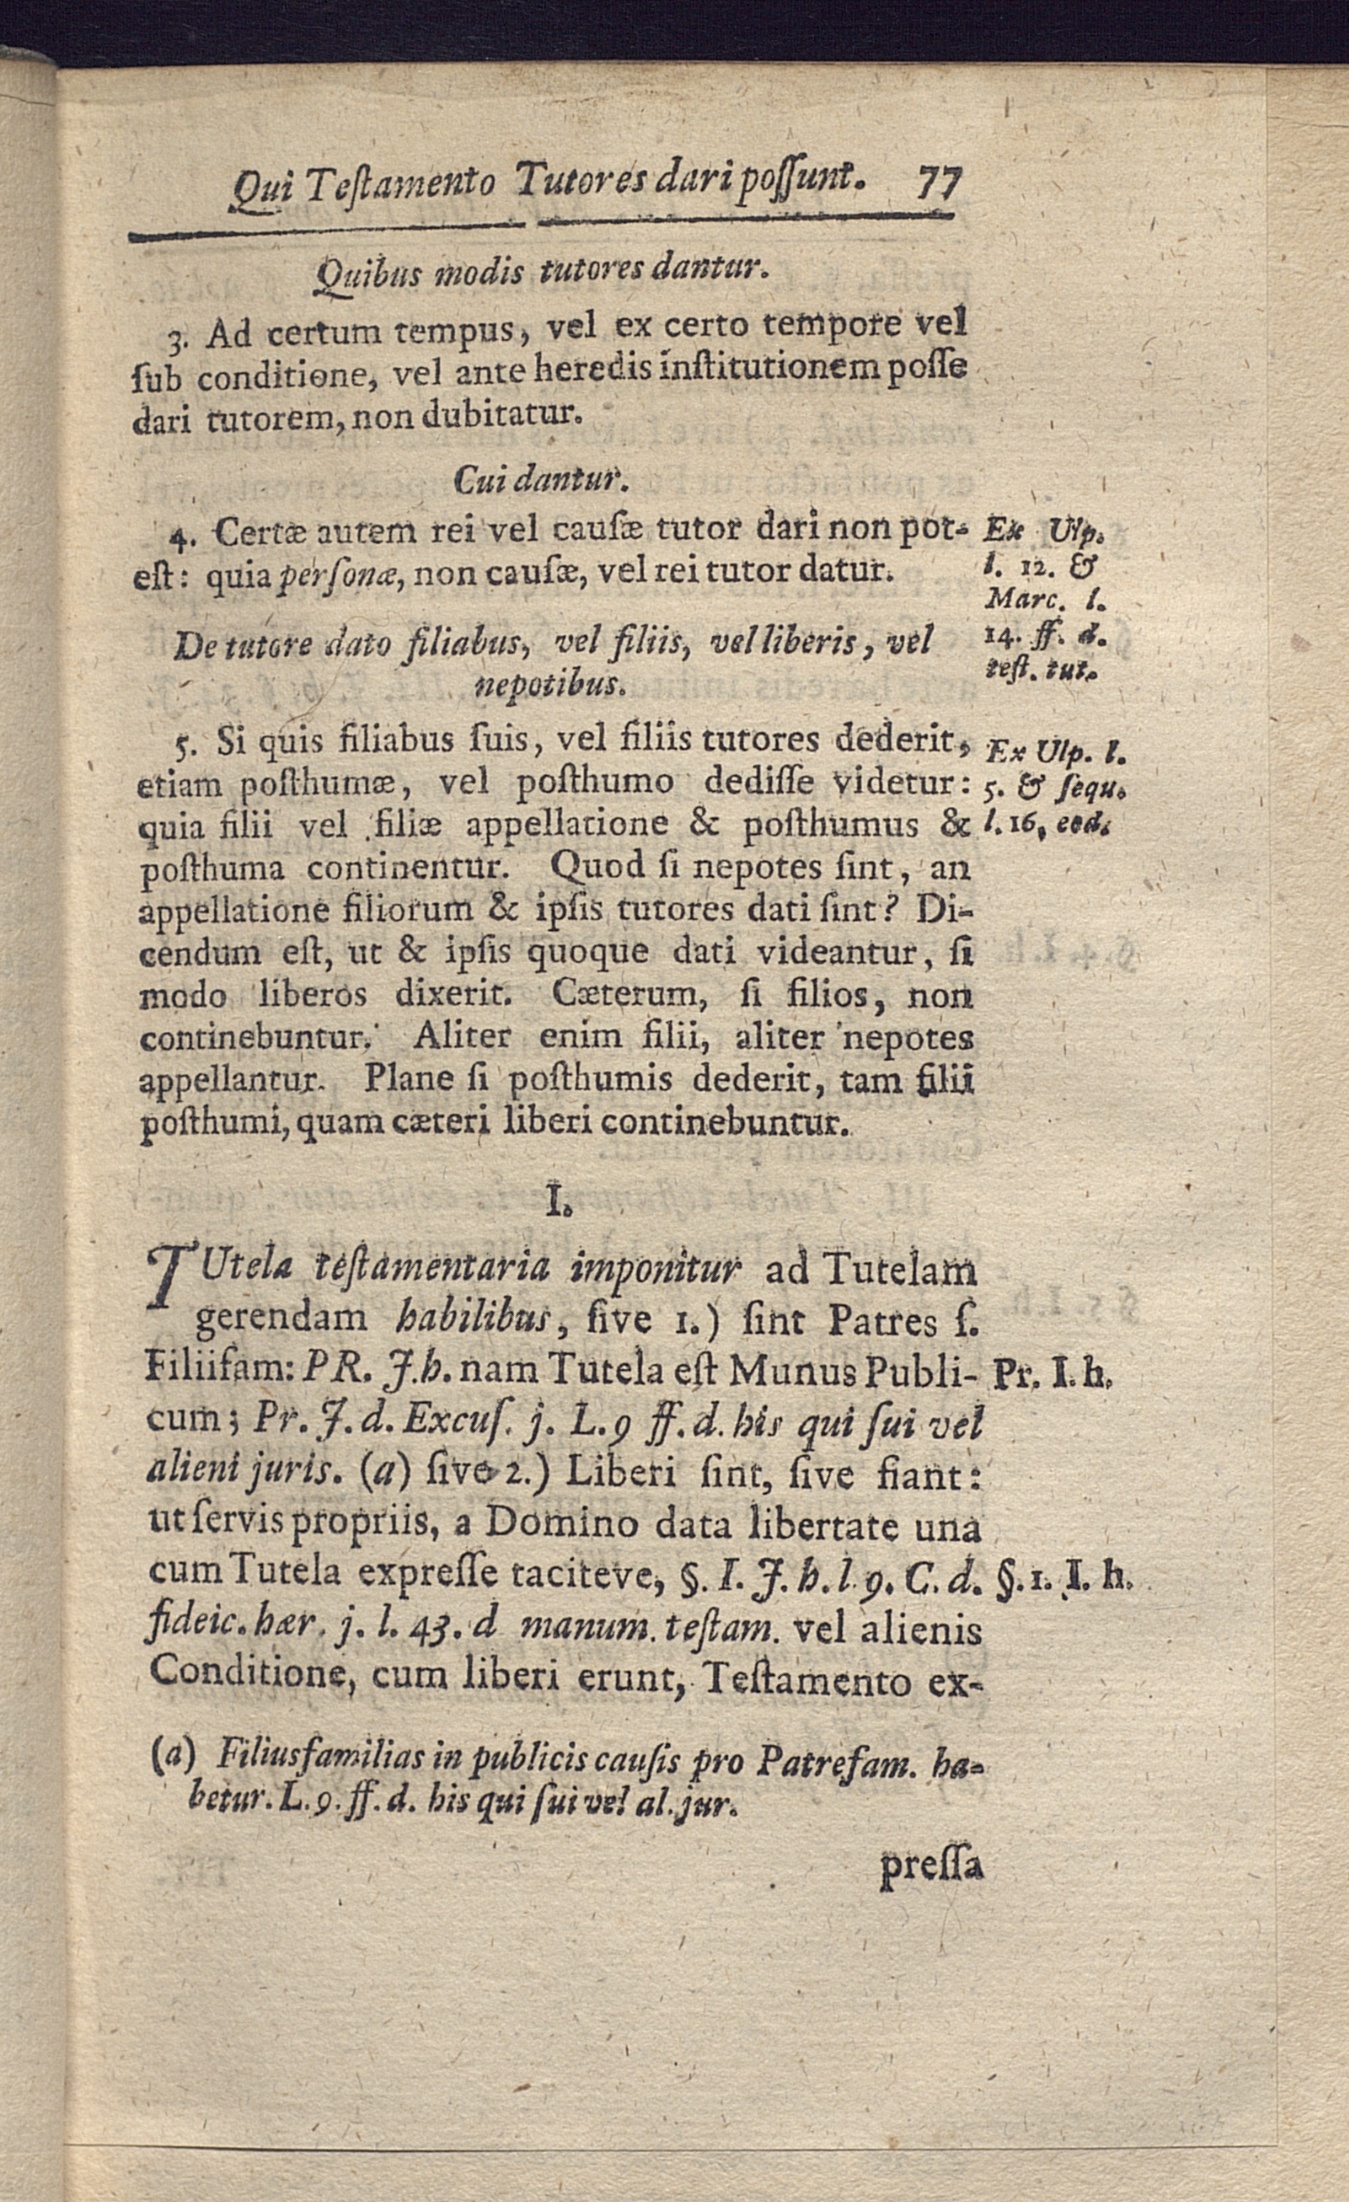 Qui Teſtamento Tutores dari poſſunt. 77
Quibus modis tutores dantur.
3. Ad certum tempus, vel ex certo tempore vel
ſub conditione, vel ante heredis inſtitutionem poſſe
dari tutorem, non dubitatur.
Cui dantur.
4. Certæ autem rei vel cauſæ tutor dari non pot-
eſt: quia perſonæ, non cauſæ, vel rei tutor datur.
Ex Ulp.
l. 12. &
Marc. l.
14. ff. d.
teſt. tut.
De tutore dato filiabus, vel filiis, vel liberis, vel
nepotibus.
5. Si quis filiabus ſuis, vel filiis tutores dederit,
etiam poſthumæ, vel poſthumo dediſſe videtur:
quia filii vel filiæ appellatione & poſthumus &
poſthuma continentur. Quod ſi nepotes ſint, an
appellatione filiorum & ipſis tutores dati ſint? Di-
cendum eſt, ut & ipſis quoque dati videantur, ſi
modo liberos dixerit. Cæterum, ſi filios, non
continebuntur. Aliter enim filii, aliter nepotes
appellantur. Plane ſi poſthumis dederit, tam filii
poſthumi, quam cæteri liberi continebuntur.
Ex Ulp. l.
5. & ſequ.
l. 16. eod.
I.
TUtela teſtamentaria imponitur ad Tutelam
gerendam habilibus, ſive 1.) ſint Patres ſ.
Filiifam: PR. J.h. nam Tutela eſt Munus Publi-
cum; Pr. J. d. Excuſ. j. L. 9 ff. d. his qui ſui vel
alieni juris. (a) ſive 2.) Liberi ſint, ſive fiant:
ut ſervis propriis, a Domino data libertate una
cum Tutela expreſſe taciteve, §. I. J. h. l. 9. C. d.
fideic. hær. j. l. 43. d manum. teſtam. vel alienis
Conditione, cum liberi erunt, Teſtamento ex-
Pr. I. h.
§. 1. I. h.
(a) Filiusfamilias in publicis cauſis pro Patrefam. ha-
betur. L. 9. ff. d. his qui ſui vel al. jur.
preſſa